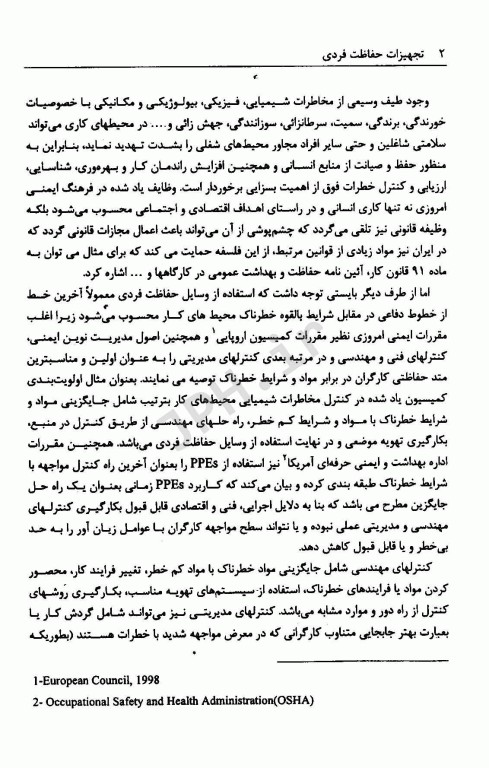 ۲ تجهیزات حفاظت فردی
وجود طیف وسیعی از مخاطرات شیمیایی، فیزیکی، بیولوژیکی و مکانیکی با خصوصیات
خورندگی، برندگی، سمیت، سرطانزائی، سوزانندگی، جهش زائی و.... در محیطهای کاری می‌تواند
سلامتی شاغلین و حتی سایر افراد مجاور محیط‌های شغلی را بشدت تهدید نماید، بنابراین به
منظور حفظ و صیانت از منابع انسانی و همچنین افزایش راندمان کار و بهره‌وری، شناسایی،
ارزیابی و کنترل خطرات فوق از اهمیت بسزایی برخوردار است. وظایف یاد شده در فرهنگ ایمنی
امروزی نه تنها کاری انسانی و در راستای اهداف اقتصادی و اجتماعی محسوب می‌شود بلکه
وظیفه قانونی نیز تلقی می‌گردد که چشم‌پوشی از آن می‌تواند باعث اعمال مجازات قانونی گردد که
در ایران نیز مواد زیادی از قوانین مرتبط، از این فلسفه حمایت می کند که برای مثال می توان به
ماده ۹۱ قانون کار، آئین نامه حفاظت و بهداشت عمومی در کارگاهها و ... اشاره کرد.
اما از طرف دیگر بایستی توجه داشت که استفاده از وسایل حفاظت فردی معمولاً آخرین خط
از خطوط دفاعی در مقابل شرایط بالقوه خطرناک محیط های کار محسوب می‌شود زیرا اغلب
مقررات ایمنی امروزی نظیر مقررات کمیسیون اروپایی۱ و همچنین اصول مدیریت نوین ایمنی،
کنترلهای فنی و مهندسی و در مرتبه بعدی کنترلهای مدیریتی را به عنوان اولین و مناسبترین
متد حفاظتی کارگران در برابر مواد و شرایط خطرناک توصیه می نمایند. بعنوان مثال اولویت‌بندی
کمیسیون یاد شده در کنترل مخاطرات شیمیایی محیط‌های کار بترتیب شامل جایگزینی مواد و
شرایط خطرناک با مواد و شرایط کم خطر، راه حلهای مهندسی از طریق کنترل در منبع،
بکارگیری تهویه موضعی و در نهایت استفاده از وسایل حفاظت فردی می‌باشد. همچنین مقررات
اداره بهداشت و ایمنی حرفه‌ای آمریکا۲ نیز استفاده از PPEs را بعنوان آخرین راه کنترل مواجهه با
شرایط خطرناک طبقه بندی کرده و بیان می‌کند که کاربرد PPEs زمانی بعنوان یک راه حل
جایگزین مطرح می باشد که بنا به دلایل اجرایی، فنی و اقتصادی قابل قبول بکارگیری کنترلهای
مهندسی و مدیریتی عملی نبوده و یا نتواند سطح مواجهه کارگران با عوامل زیان آور را به حد
بی‌خطر و یا قابل قبول کاهش دهد.
کنترلهای مهندسی شامل جایگزینی مواد خطرناک با مواد کم خطر، تغییر فرایند کار، محصور
کردن مواد یا فرایندهای خطرناک، استفاده از سیستم‌های تهویه مناسب، بکارگیری روشهای
کنترل از راه دور و موارد مشابه می‌باشد. کنترلهای مدیریتی نیز می‌تواند شامل گردش کار یا
بعبارت بهتر جابجایی متناوب کارگرانی که در معرض مواجهه شدید با خطرات هستند (بطوریکه
1-European Council, 1998
2- Occupational Safety and Health Administration(OSHA)